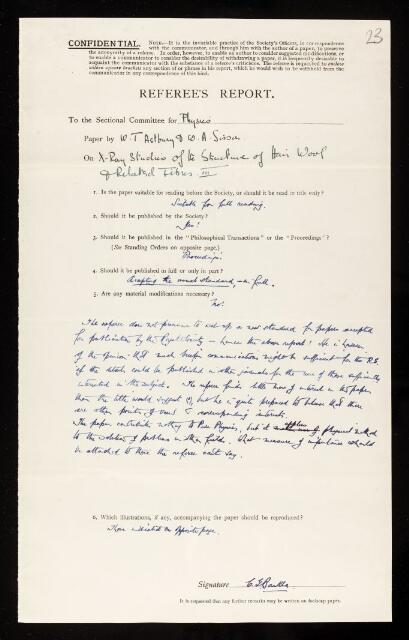 23
CONFIDENTIAL. NOTE.—It is the invariable practice of the Society's Officers, in correspondence
with the communicator, and through him with the author of a paper, to preserve
the anonymity of a referee. In order, however, to enable an author to consider suggested modifications, or
to enable a communicator to consider the desirability of withdrawing a paper, it is frequently desirable to
acquaint the communicator with the substance of a referee's criticisms. The referee is requested to enclose
within square brackets any section of or phrase in his report, which he would wish to be withheld from the
communicator in any correspondence of this kind.
REFEREE'S REPORT.
To the Sectional Committee for Physics
Paper by W. T. Astbury & W. A. Sisson.
On X-Ray Studies of the Structure of Hair Wool
& Related Fibres III
1. Is the paper suitable for reading before the Society, or should it be read in title only?
Suitable for full reading.
2. Should it be published by the Society?
Yes!
3. Should it be published in the "Philosophical Transactions" or the "Proceedings"?
(See Standing Orders on opposite page.)
Proceedings
4. Should it be published in full or only in part?
Accepting the usual standard, in full.
5. Are any material modifications necessary?
No!
The referee does not presume to set up a new standard for papers accepted
for publication by the Royal Society – hence the above replies! He is however
of the opinion that much briefer communications might be sufficient for the R.S.
if the details could be published in other journals for the use of those sufficiently
interested in the subject. The referee finds little new of interest in the paper
than the title would suggest of, but he is quite prepared to believe that there
are other points of view & corresponding interests.
The paper contributes nothing to Pure Physics, but it applies physical method
to the solution of problems in other fields. What measure of importance should
be attached to these the referee can't say.
6. Which illustrations, if any, accompanying the paper should be reproduced?
Those indicated on opposite page.
Signature
It is requested that any further remarks may be written on foolscap paper.